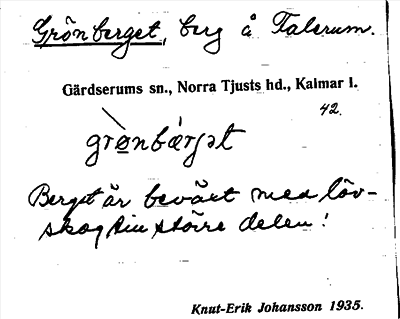 Grönberget, berg å Talerum.
Gärdserums sn., Norra Tjusts hd., Kalmar l.
42.
grønbærjət
Berget är beväxt med löv-
skog till större delen!
Knut-Erik Johansson 1935.